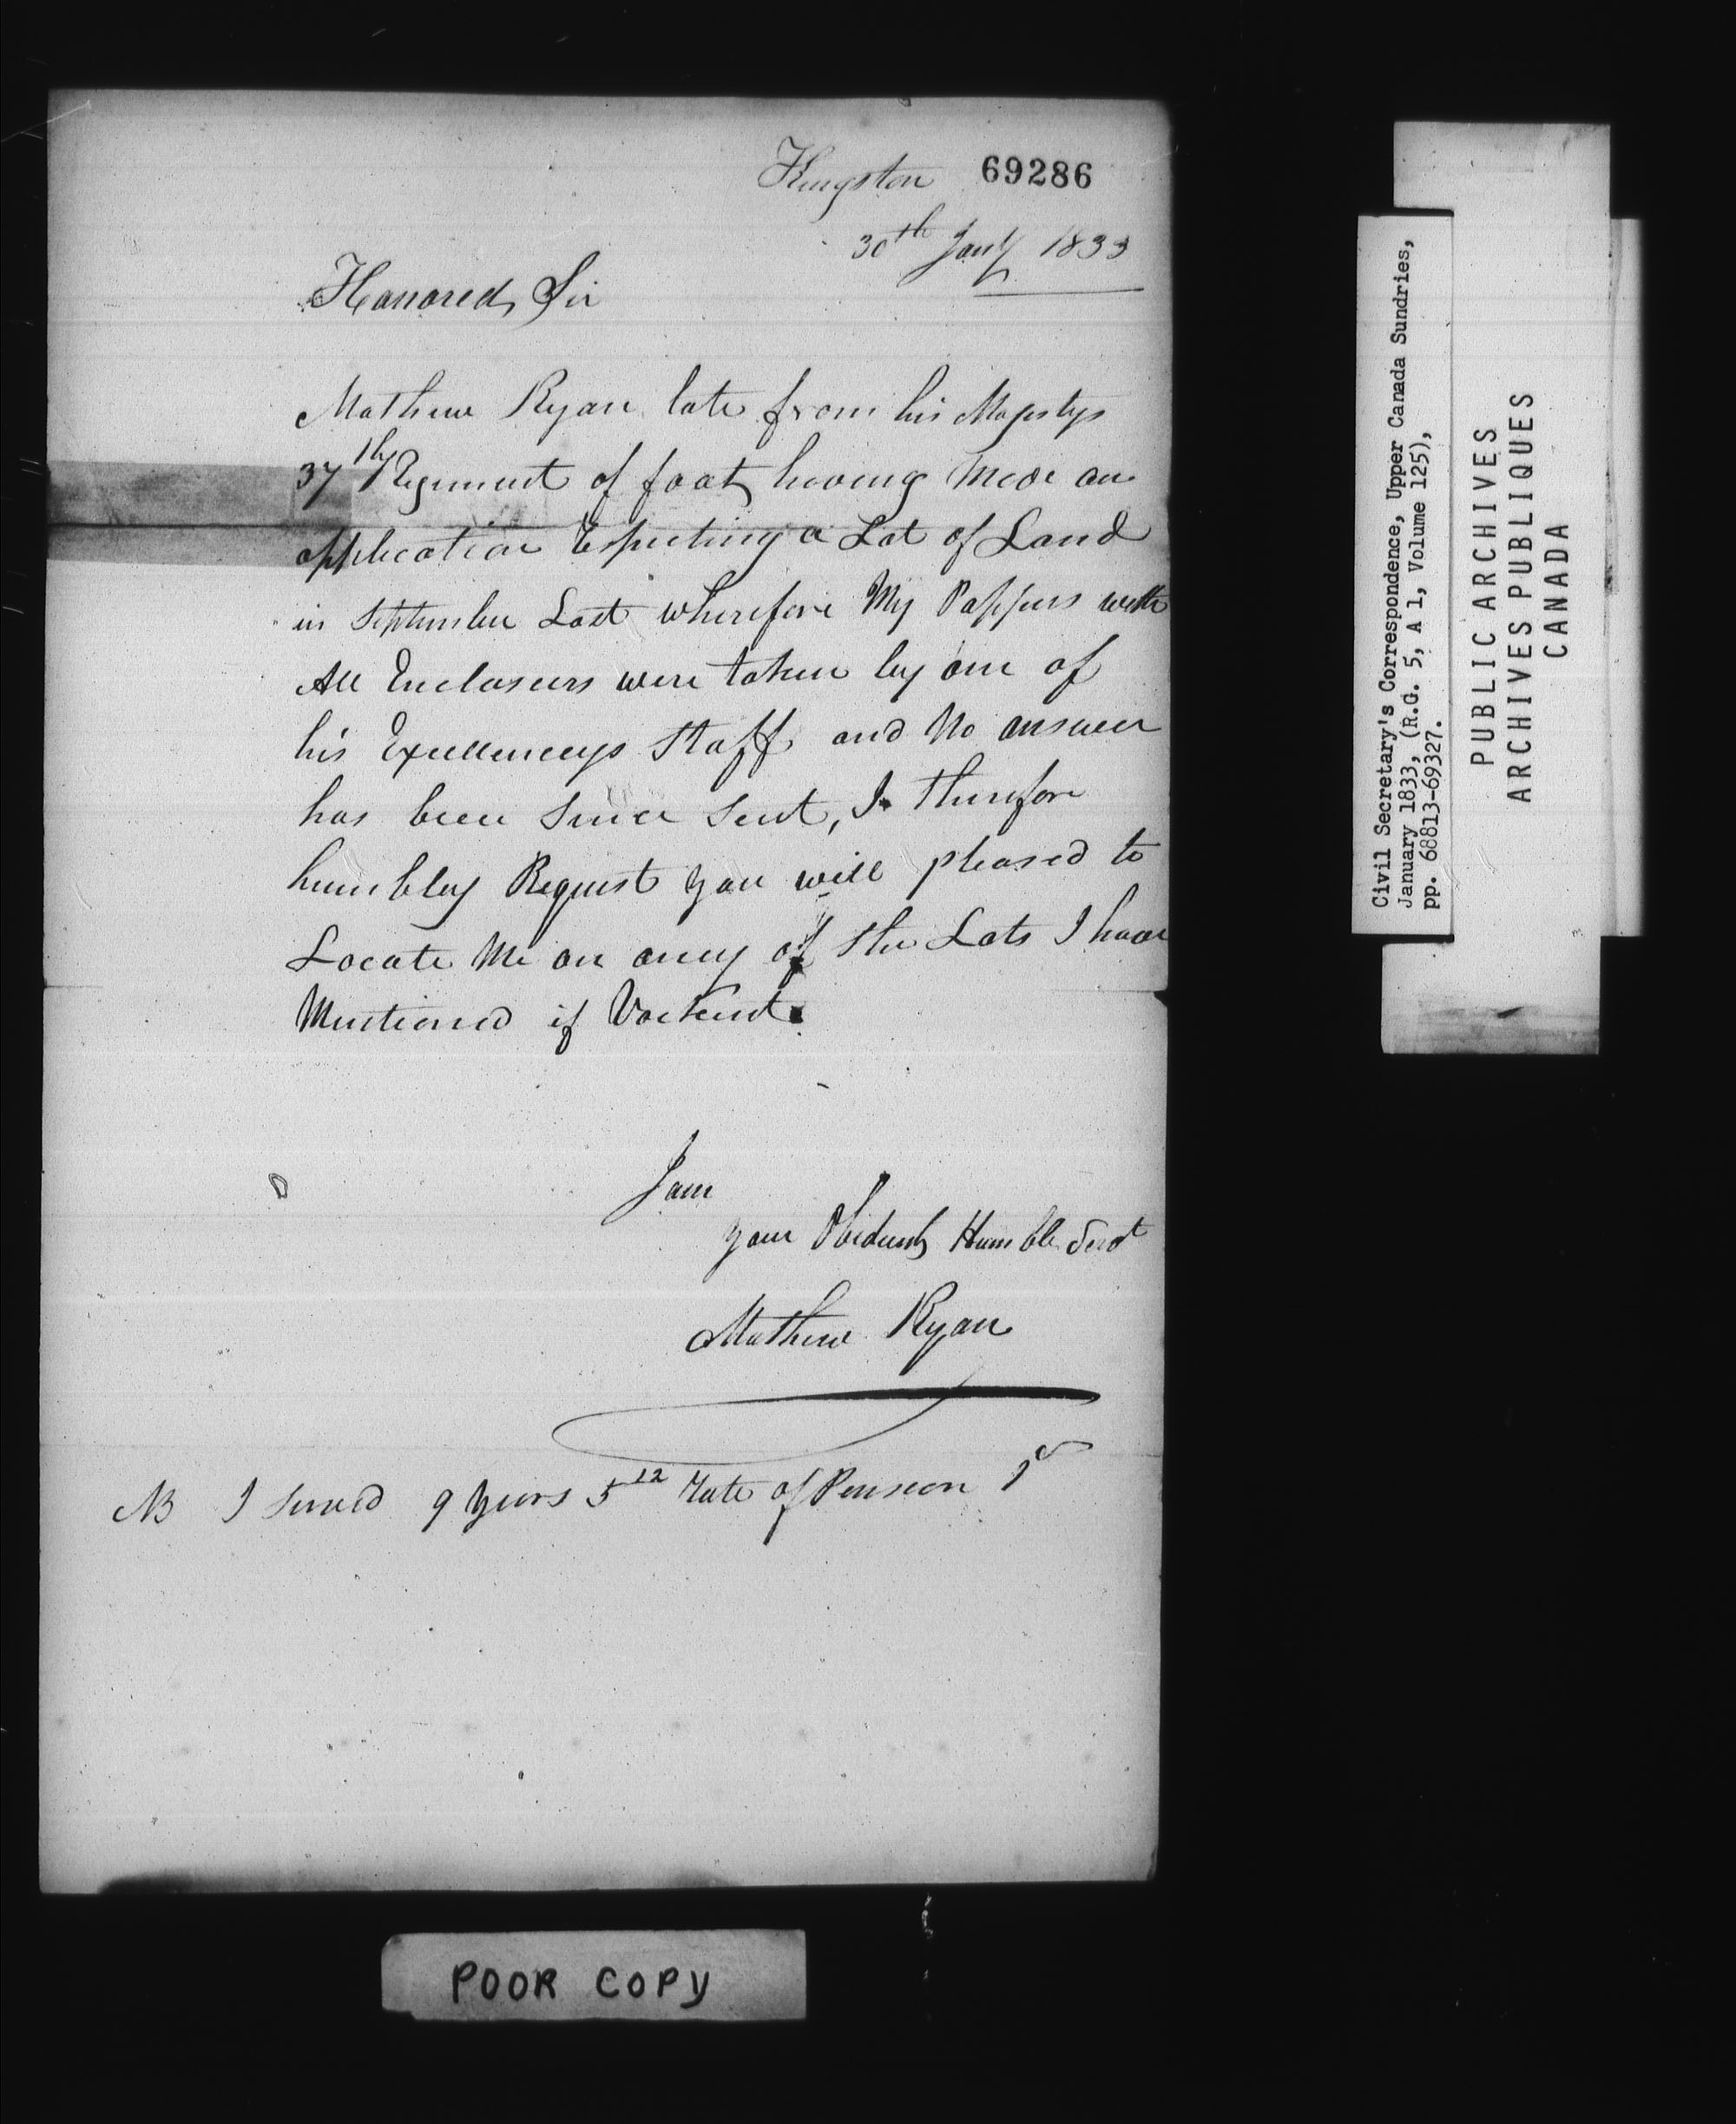 Kingston 69286
30th Jany 1833
Honored Sir
Mathew Ryan late from his Majestys
37th Regiment of foot having Made an
application Especting a Lot of Land
in September Last wherefore My Pappers with
All Enclosers were taken by one of
his Excellenceys Staff and No answer
has been Since Sent, I therefore
humbley Request you will pleased to
Locate Me on aney of the Lots I have
Mentioned if Vackent.
I am
your Obident Humble Servt
Mathew Ryan
NB I Served 9 Years 5 12 Rate of Pension
POOR COPY
Civil Secretary's Correspondence, Upper Canada Sundries,
January 1833, (R.G. 5, A 1, Volume 125),
pp. 68813-69327.
PUBLIC ARCHIVES
ARCHIVES PUBLIQUES
CANADA